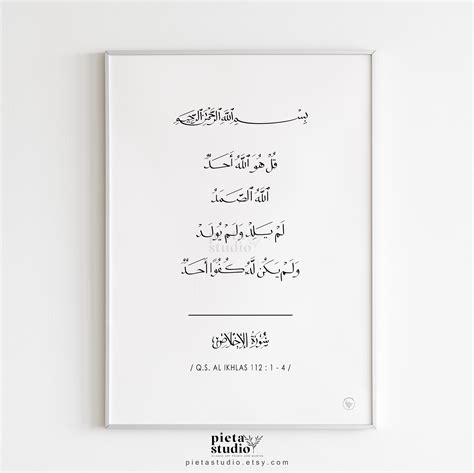 بِسْمِ اللَّهِ الرَّحْمَٰنِ الرَّحِيمِ
قُلْ هُوَ اللَّهُ أَحَدٌ
اللَّهُ الصَّمَدُ
لَمْ يَلِدْ وَلَمْ يُولَدْ
وَلَمْ يَكُن لَّهُ كُفُوًا أَحَدٌ
سُورَةُ الإِخْلَاصِ
/ Q.S. AL IKHLAS 112 : 1 - 4 /
pieta
studio
pietastudio.etsy.com